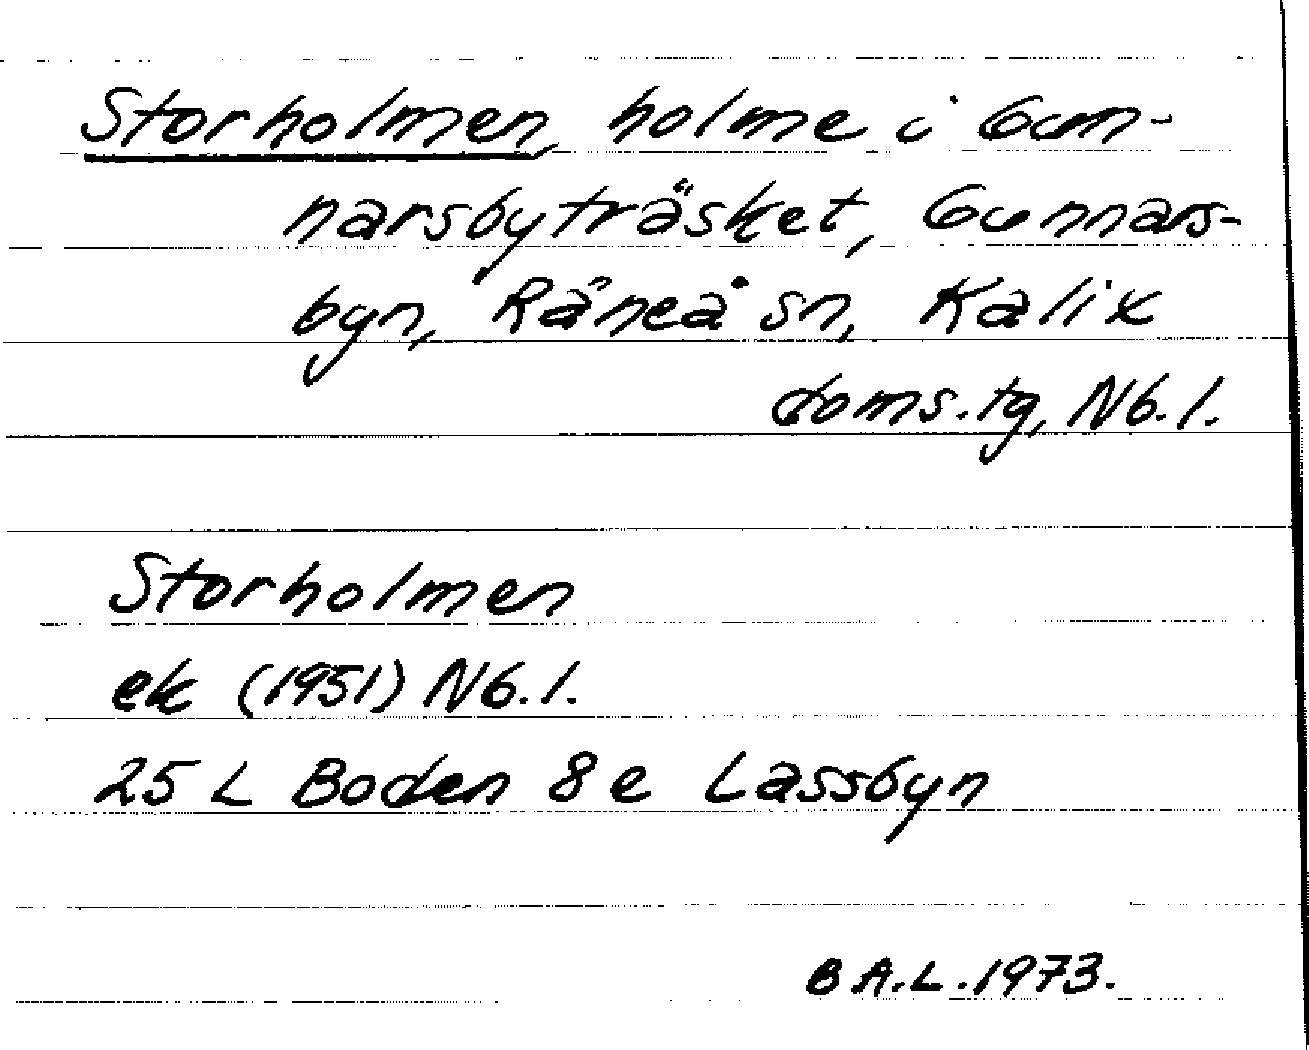 Storholmen, holme i Gun-
narsbyträsket, Gunnars-
byn, Råneå sn, Kalix
doms.tg, Nb.l.
Storholmen
ek (1951) Nb.l.
25 L Boden 8e Lassbyn
B A.L. 1973.